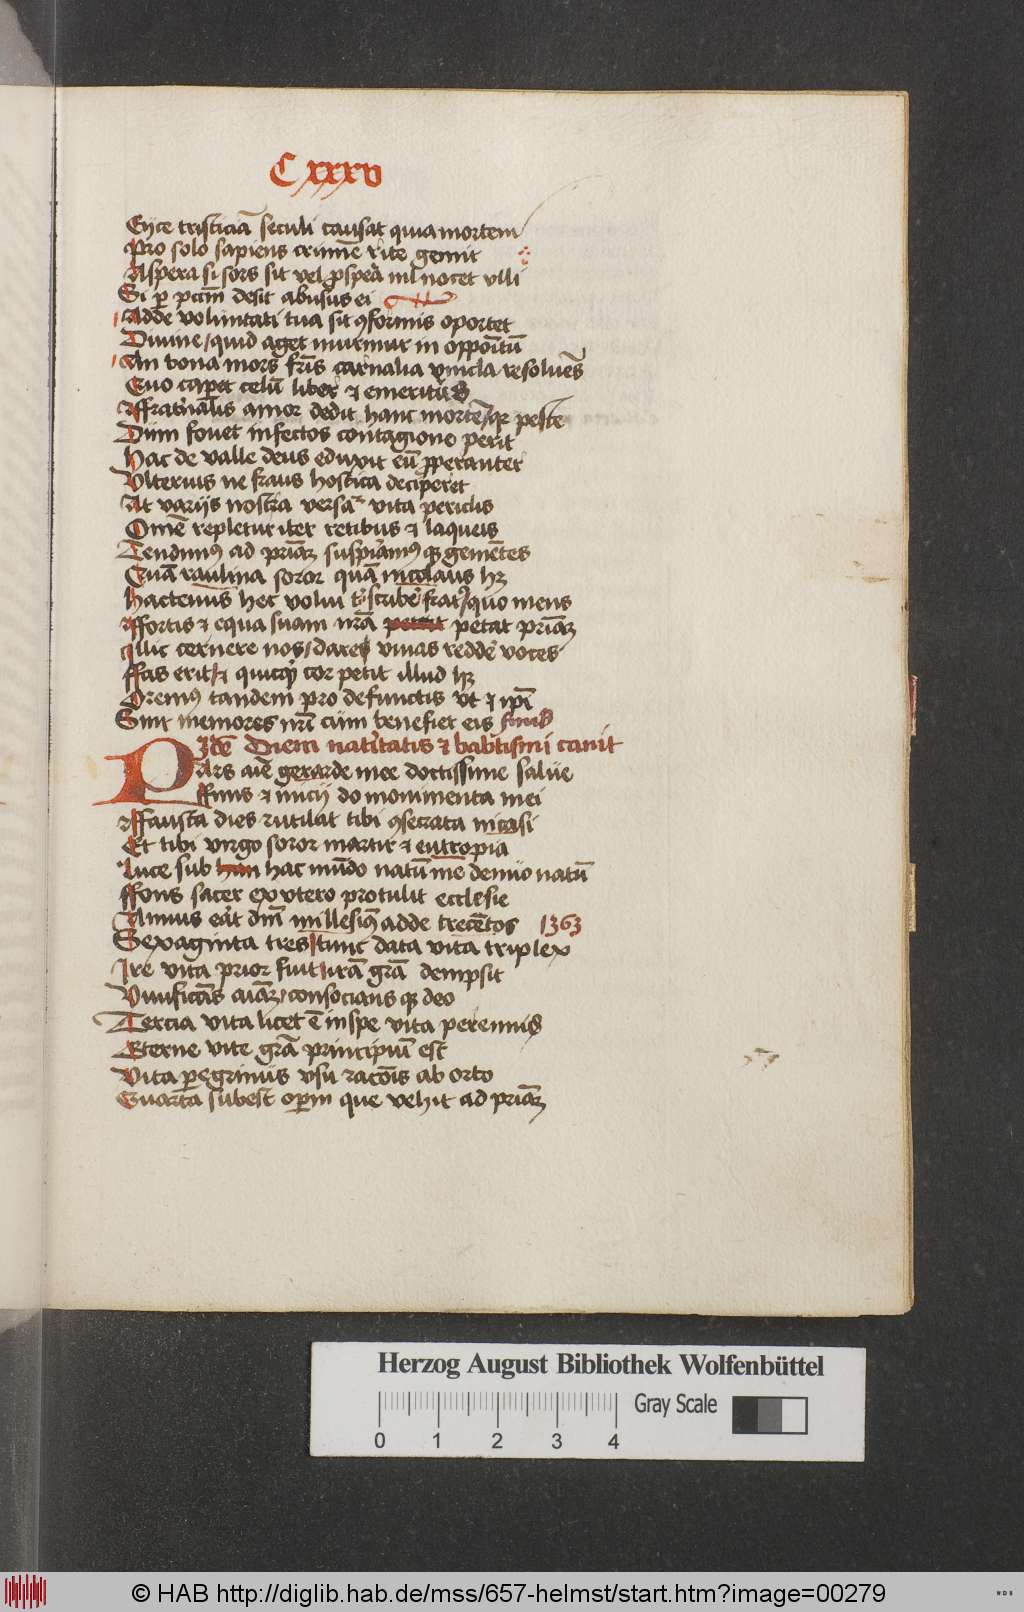 C xxxv
Eijce tristiciā seculi causat quia mortem
Pro solo sapiens crimīe rite gemit
Aspera si sors sit vel ꝓspera nil nocet vlli
Si ꝑ pctm̄ desit abusus ei
Adde voluntati tua sit ꝯformis oportet
Diuine / quid aget murmur in oppoitū
An bona mors fr̄is carnalia vincla resoluēs
Quo caperet celū liber ⁊ emeritus
Affraternalis amor dedit hanc mortē / qꝛ peste
Dum fouet infectos contagione perit
Hac de valle deus eduxit eū ꝓperanter
Vlterius ne fraus hostica deciperet
At varijs nostra versat᷑ vita periclis
Omē repletur iter retibus ⁊ laqueis
Tendimꝰ ad priāꝫ suspiramꝰ qꝫ gemētes
Cuā raulina soror quā nicolaus hꝫ
Hactenus hec volui tᵉ scribere fratꝰ / quo mens
Affortis ⁊ equa suam nr̄a petat priāꝫ
Illic cernere nos / dare viuas reddere voces
ffas erit / ⁊ quicqͥd cor petit illud hꝫ
Oremꝰ tandem pro defunctis vt ⁊ ip̄i
Sint memores nr̄i cum benefiet eis finis
Idē Diem natiuitatis ⁊ babtismi canit
Pars aīe gerarde mee doctissime salue
ffinis ⁊ inicij do monimenta mei
Affausta dies rutilat tibi ꝯsecrata nicasi
Et tibi virgo soror martir ⁊ eutropia
Luce sub han hac mūdo natū me denuo natū
ffons sacer ex vtero protulit ecclesie
Annus erat dm̄ millesimꝰ adde trecētos 1363
Sexaginta tres / tunc data vita triplex
Ire vita prior fuit / irā grā dempsit
Viuificās aīaꝫ / consocians qꝫ deo
Tercia vita licet ē in spe vita perennis
Eterne vite grā principiū est
Vita ꝑegrinus vsu racōis ab orto
Quarta subest opm̄ que vehit ad priāꝫ
Herzog August Bibliothek Wolfenbüttel
Gray Scale
0 1 2 3 4
© HAB http://diglib.hab.de/mss/657-helmst/start.htm?image=00279